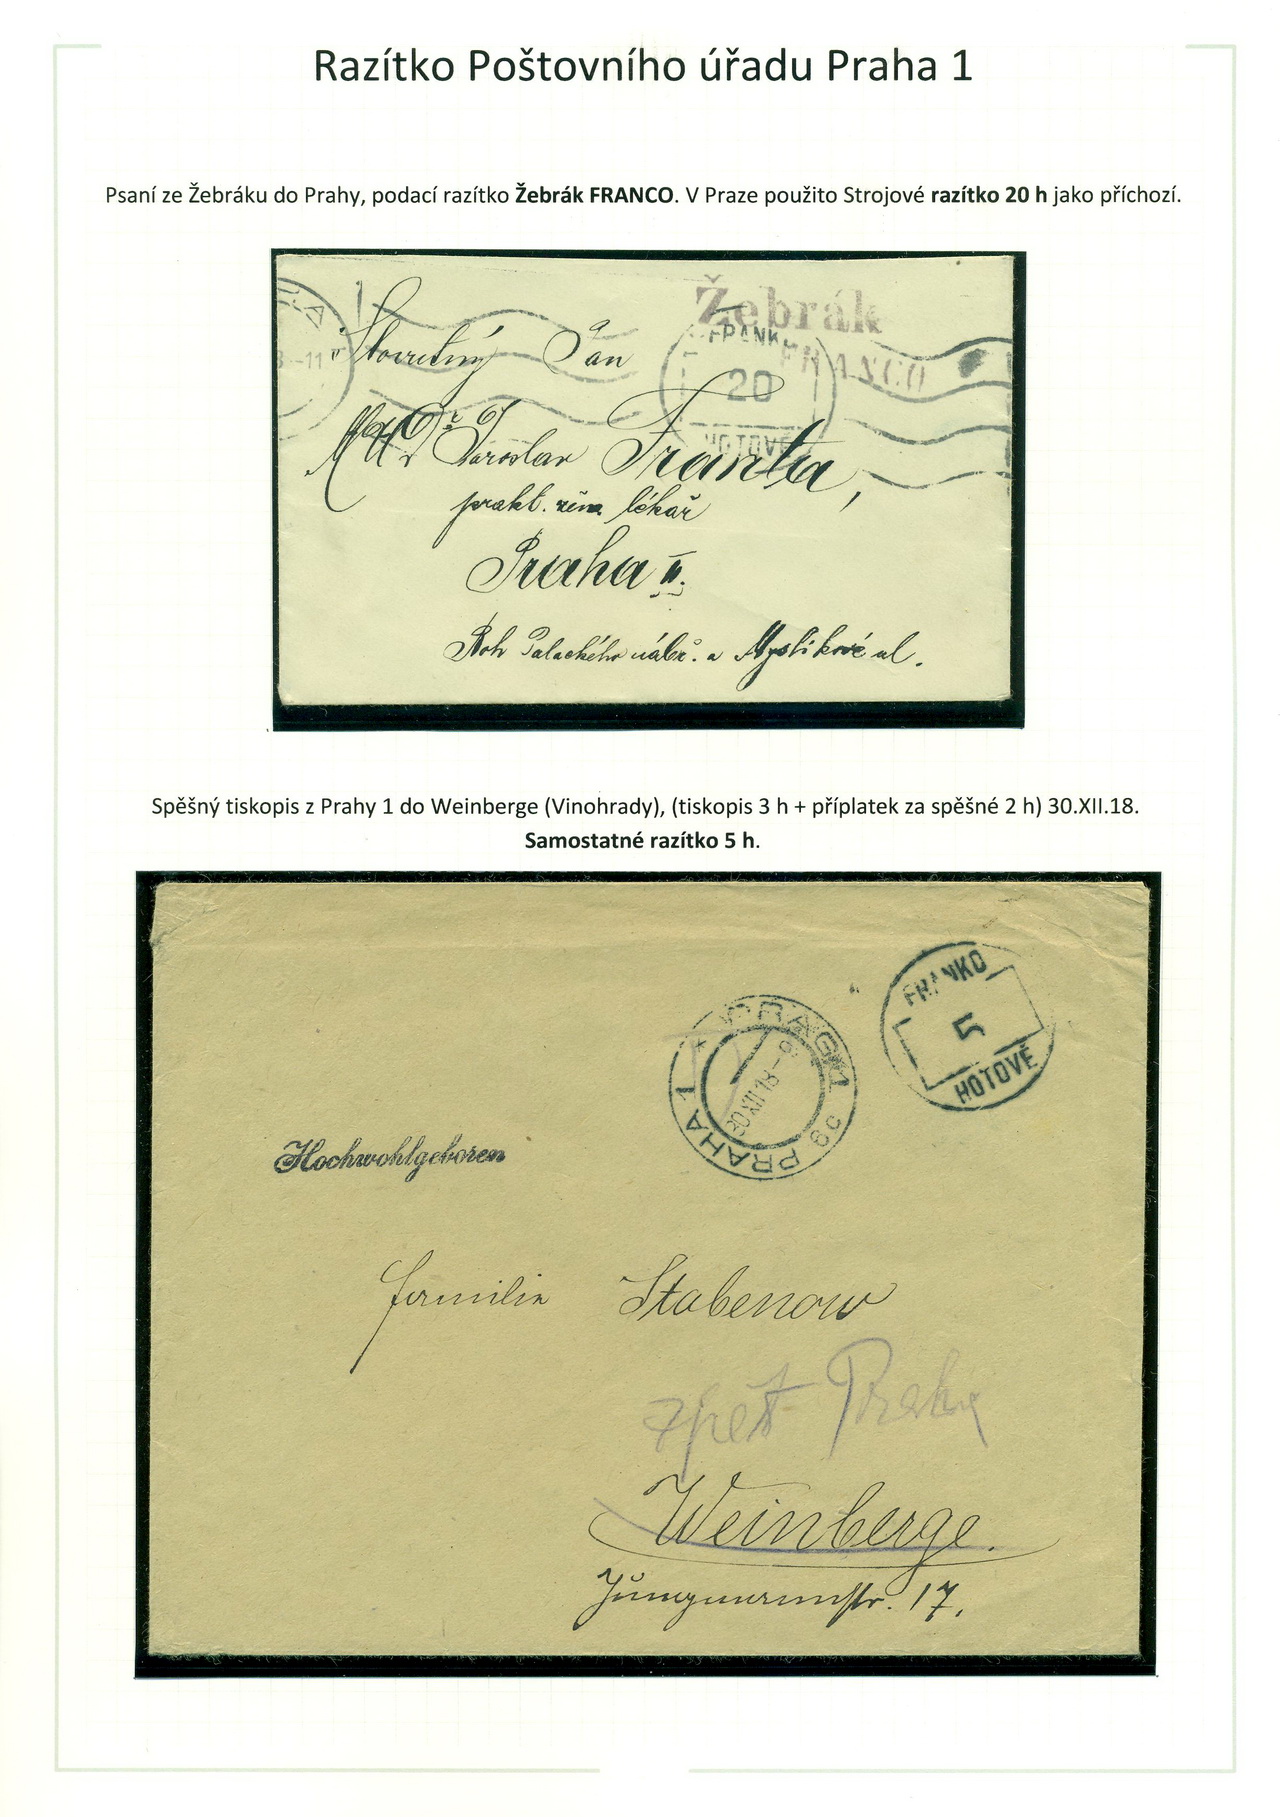 Razítko Poštovního úřadu Praha 1
Psaní ze Žebráku do Prahy, podací razítko Žebrák FRANCO. V Praze použito Strojové razítko 20 h jako příchozí.
Žebrák
FRANCO
FRANK
20
HOTOVĚ
-11
Slovutný Pan
MUDr Jaroslav Franta,
prakt. lékař
Praha II.
Roh Palackého nábř. a Myslíkové ul.
Spěšný tiskopis z Prahy 1 do Weinberge (Vinohrady), (tiskopis 3 h + příplatek za spěšné 2 h) 30.XII.18.
Samostatné razítko 5 h.
FRANKO
5
HOTOVĚ
PRAG 1
30.XII.18
PRAHA 1
Hochwohlgeboren
Familie Stabenow
zpět Praha
Weinberge.
Jungmannstr. 17.